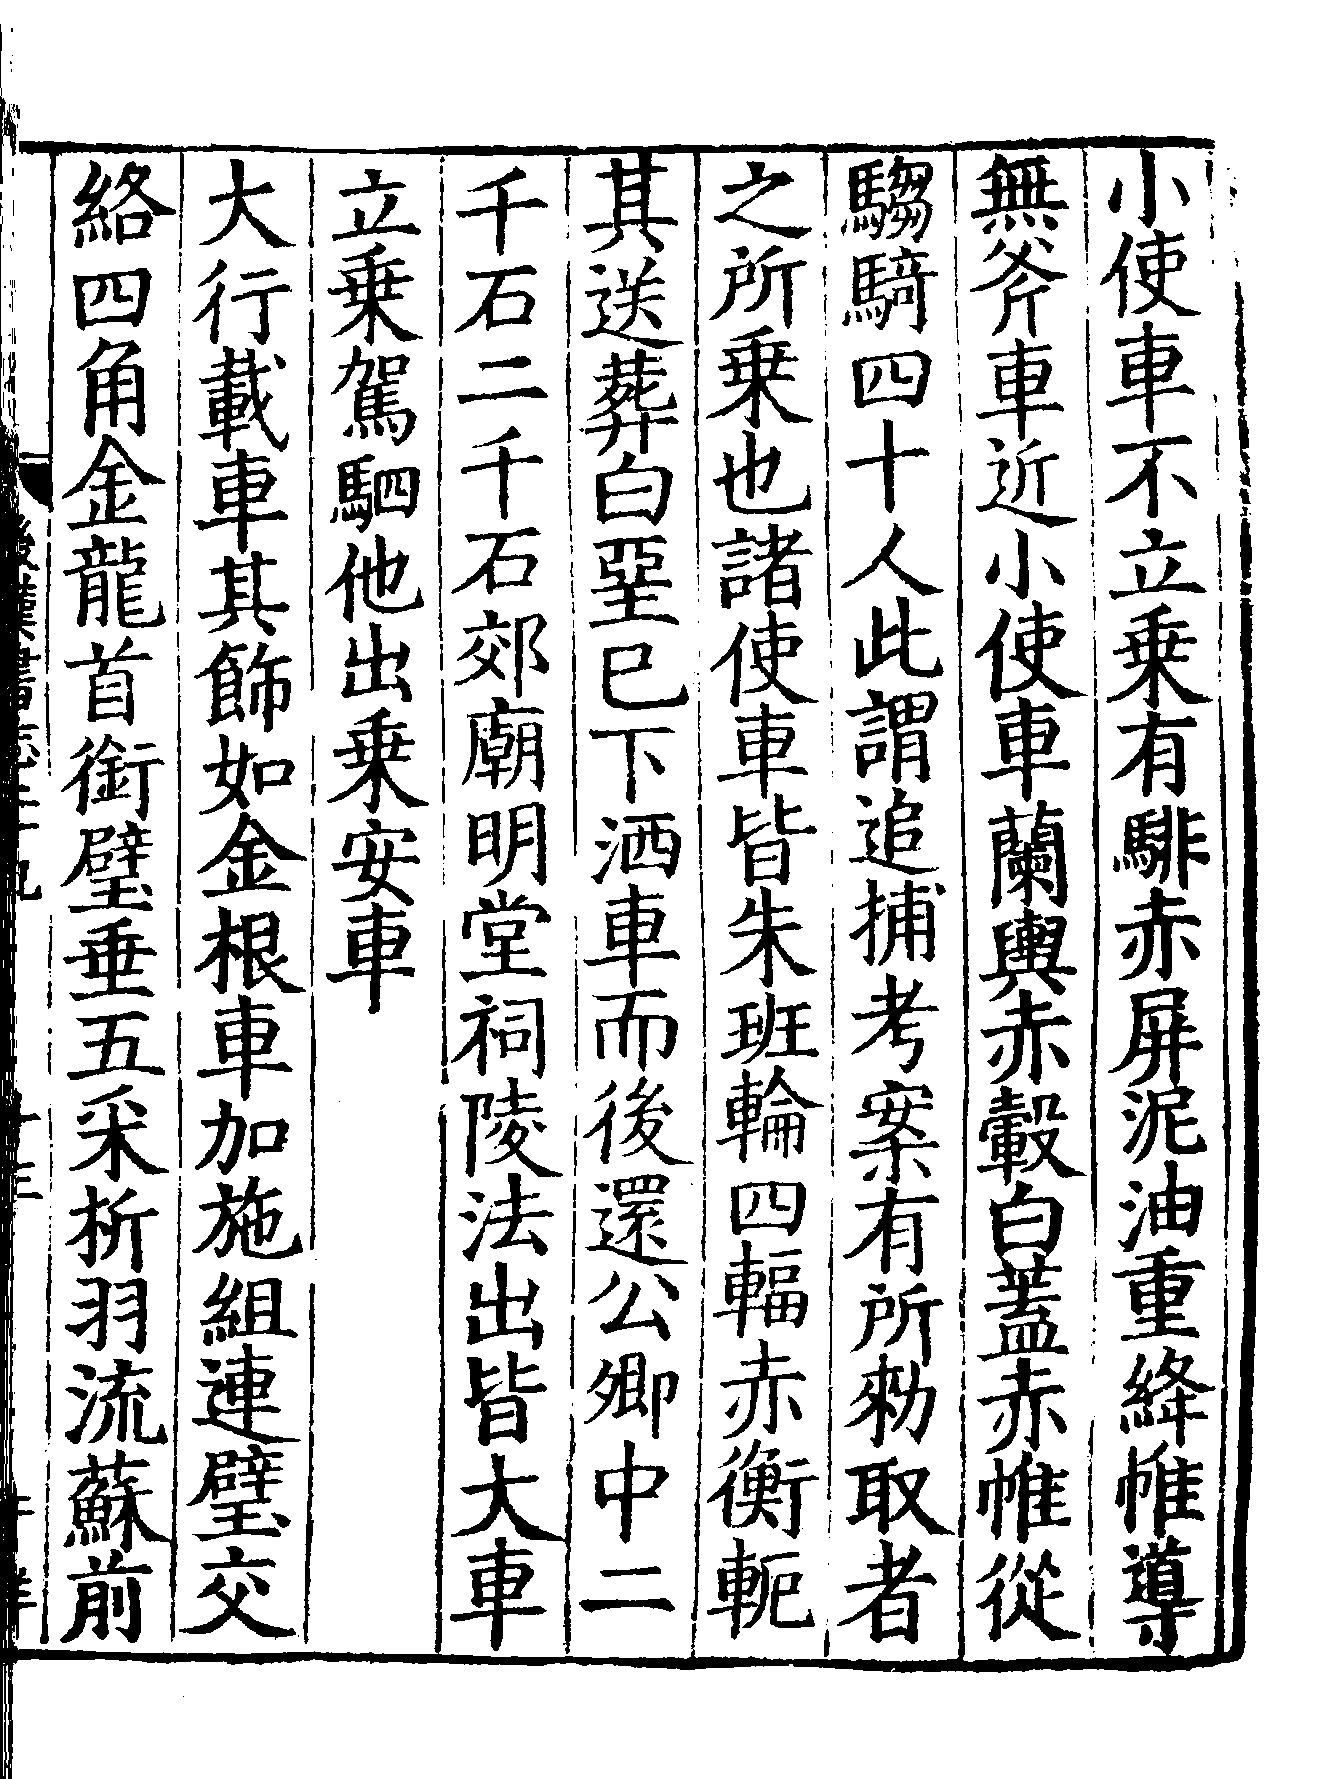 小使車不立乗有騑赤屏泥油重絳帷導
無斧車近小使車蘭輿赤轂白蓋赤帷從
騶騎四十人此謂追捕考案有所勑取者
之所乗也諸使車皆朱班輪四輻赤衡軛
其送葬白堊巳下洒車而後還公卿中二
千石二千石郊廟明堂祠陵法出皆大車
立乗駕駟他出乗安車
大行載車其飾如金根車加施組連璧交
絡四角金龍首銜璧垂五采析羽流蘇前